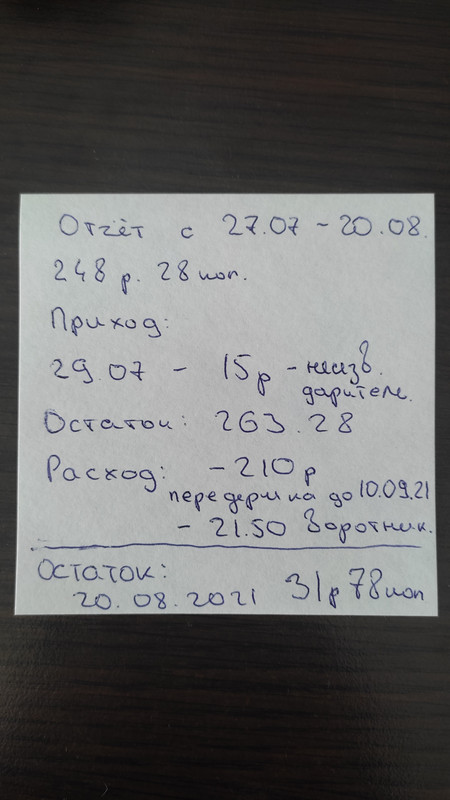 Отчёт с 27.07 - 20.08.
248 р. 28 коп.
Приход:
29.07 - 15р - неизв.
дарители.
Остаток: 263.28
Расход: - 210 р
передержка до 10.09.21
- 21.50 Воротник.
Остаток:
20.08.2021 31р 78коп